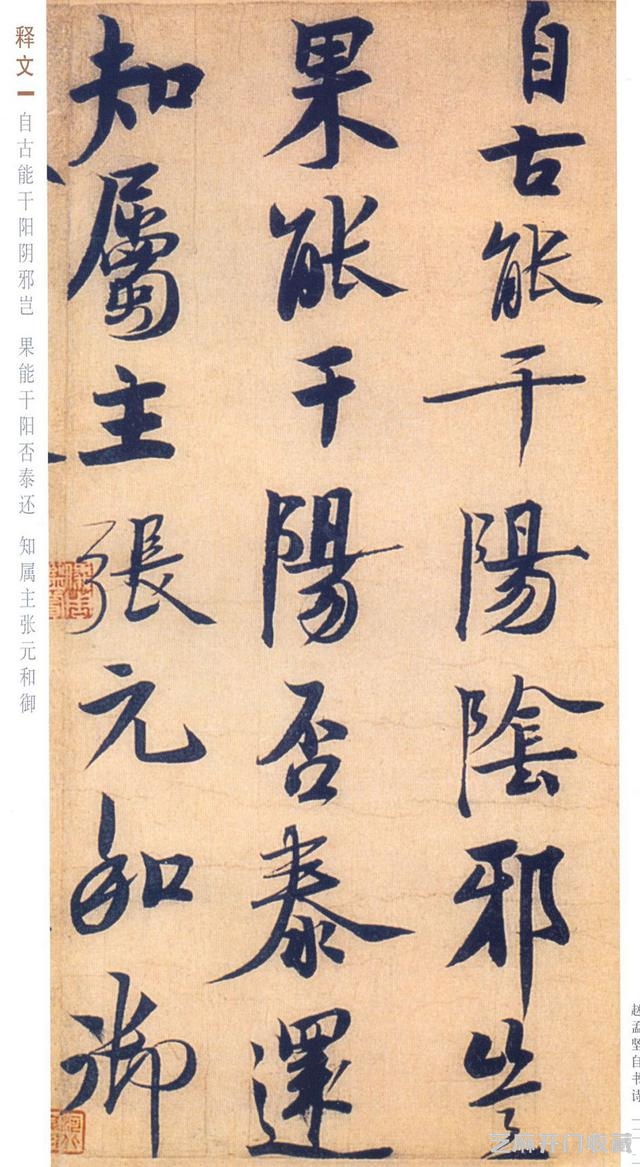 自古能干陽陰邪豈
果能干陽否泰還
知屬主張元和御
释文
自古能干阳阴邪岂 果能干阳否泰还 知属主张元和御
赵孟坚自书诗
芝麻开门收藏